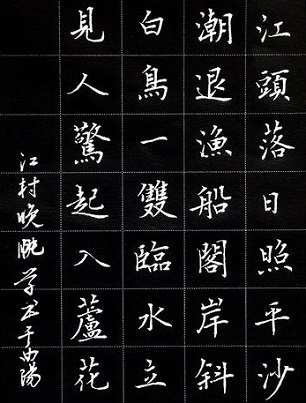 江頭落日照平沙
潮退漁船閣岸斜
白鳥一雙臨水立
見人驚起入蘆花
江村晚眺学书于曲阳